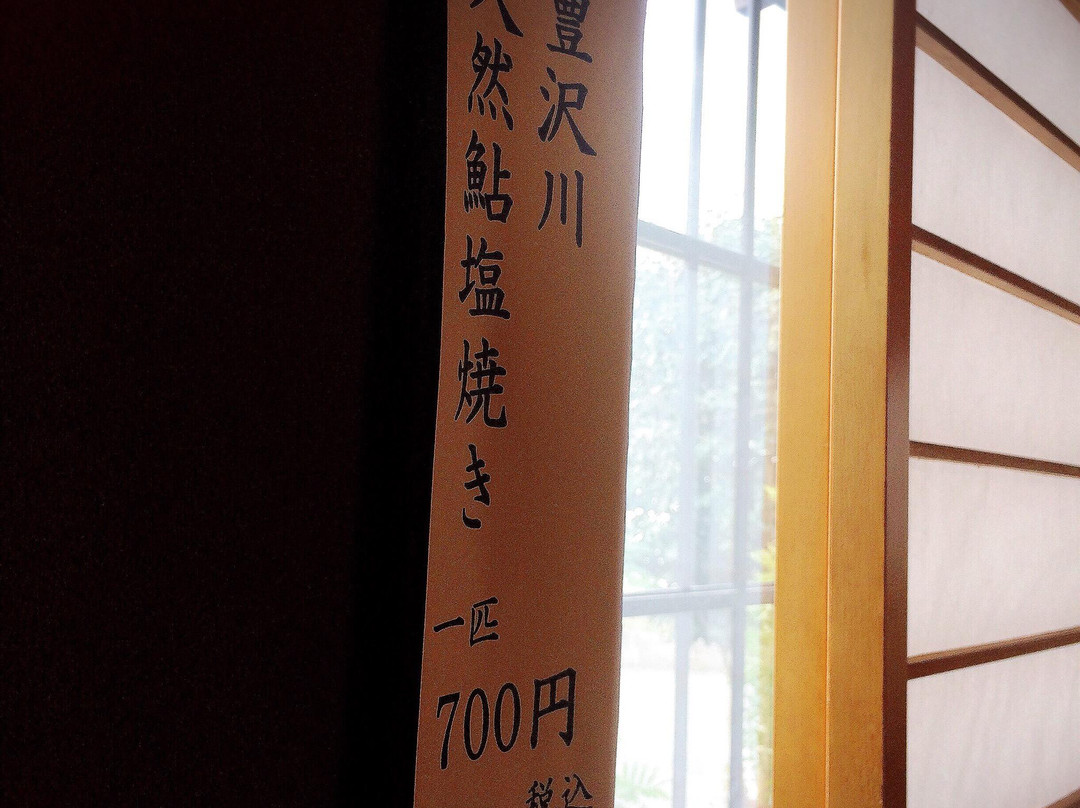 豊沢川
天然鮎塩焼き
一匹
700円
税込